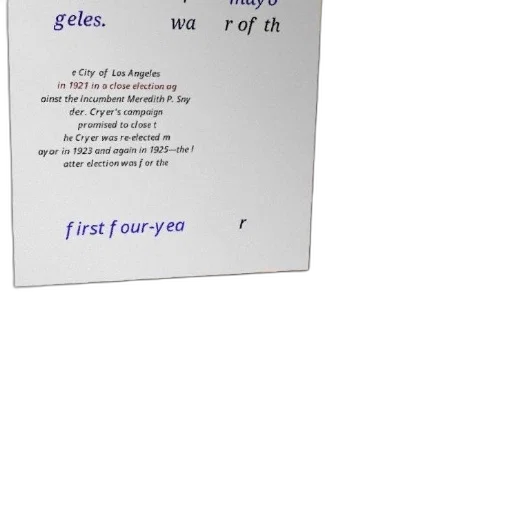 mayo
geles. wa r of th
e City of Los Angeles
in 1921 in a close election ag
ainst the incumbent Meredith P. Sny
der. Cryer's campaign
promised to close t
he Cryer was re-elected m
ayor in 1923 and again in 1925—the l
atter election was for the
first four-yea r